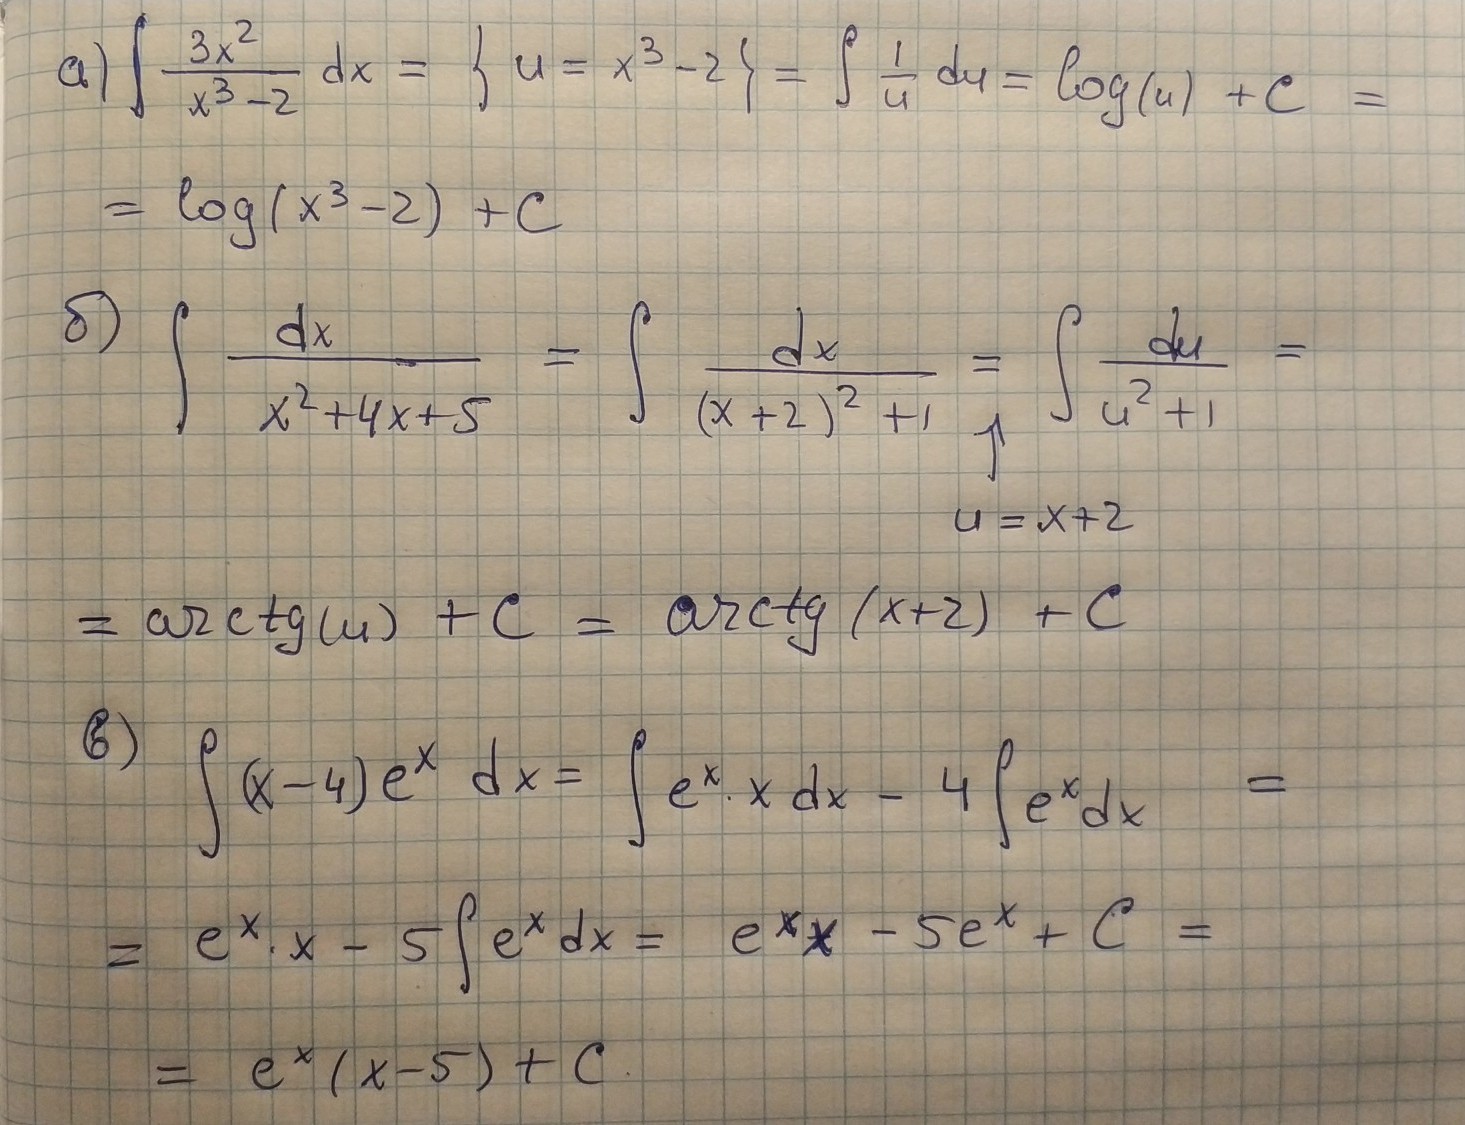 а) ∫ 3x²/(x³-2) dx = { u = x³-2 } = ∫ 1/u du = log(u) + C =
= log(x³-2) + C
б) ∫ dx/(x²+4x+5) = ∫ dx/((x+2)²+1) = ∫ du/(u²+1) =
↑
u = x+2
= arctg(u) + C = arctg(x+2) + C
в) ∫ (x-4)eˣ dx = ∫ eˣ·x dx - 4∫ eˣdx =
= eˣ·x - 5∫ eˣ dx = eˣx - 5eˣ + C =
= eˣ(x-5) + C.